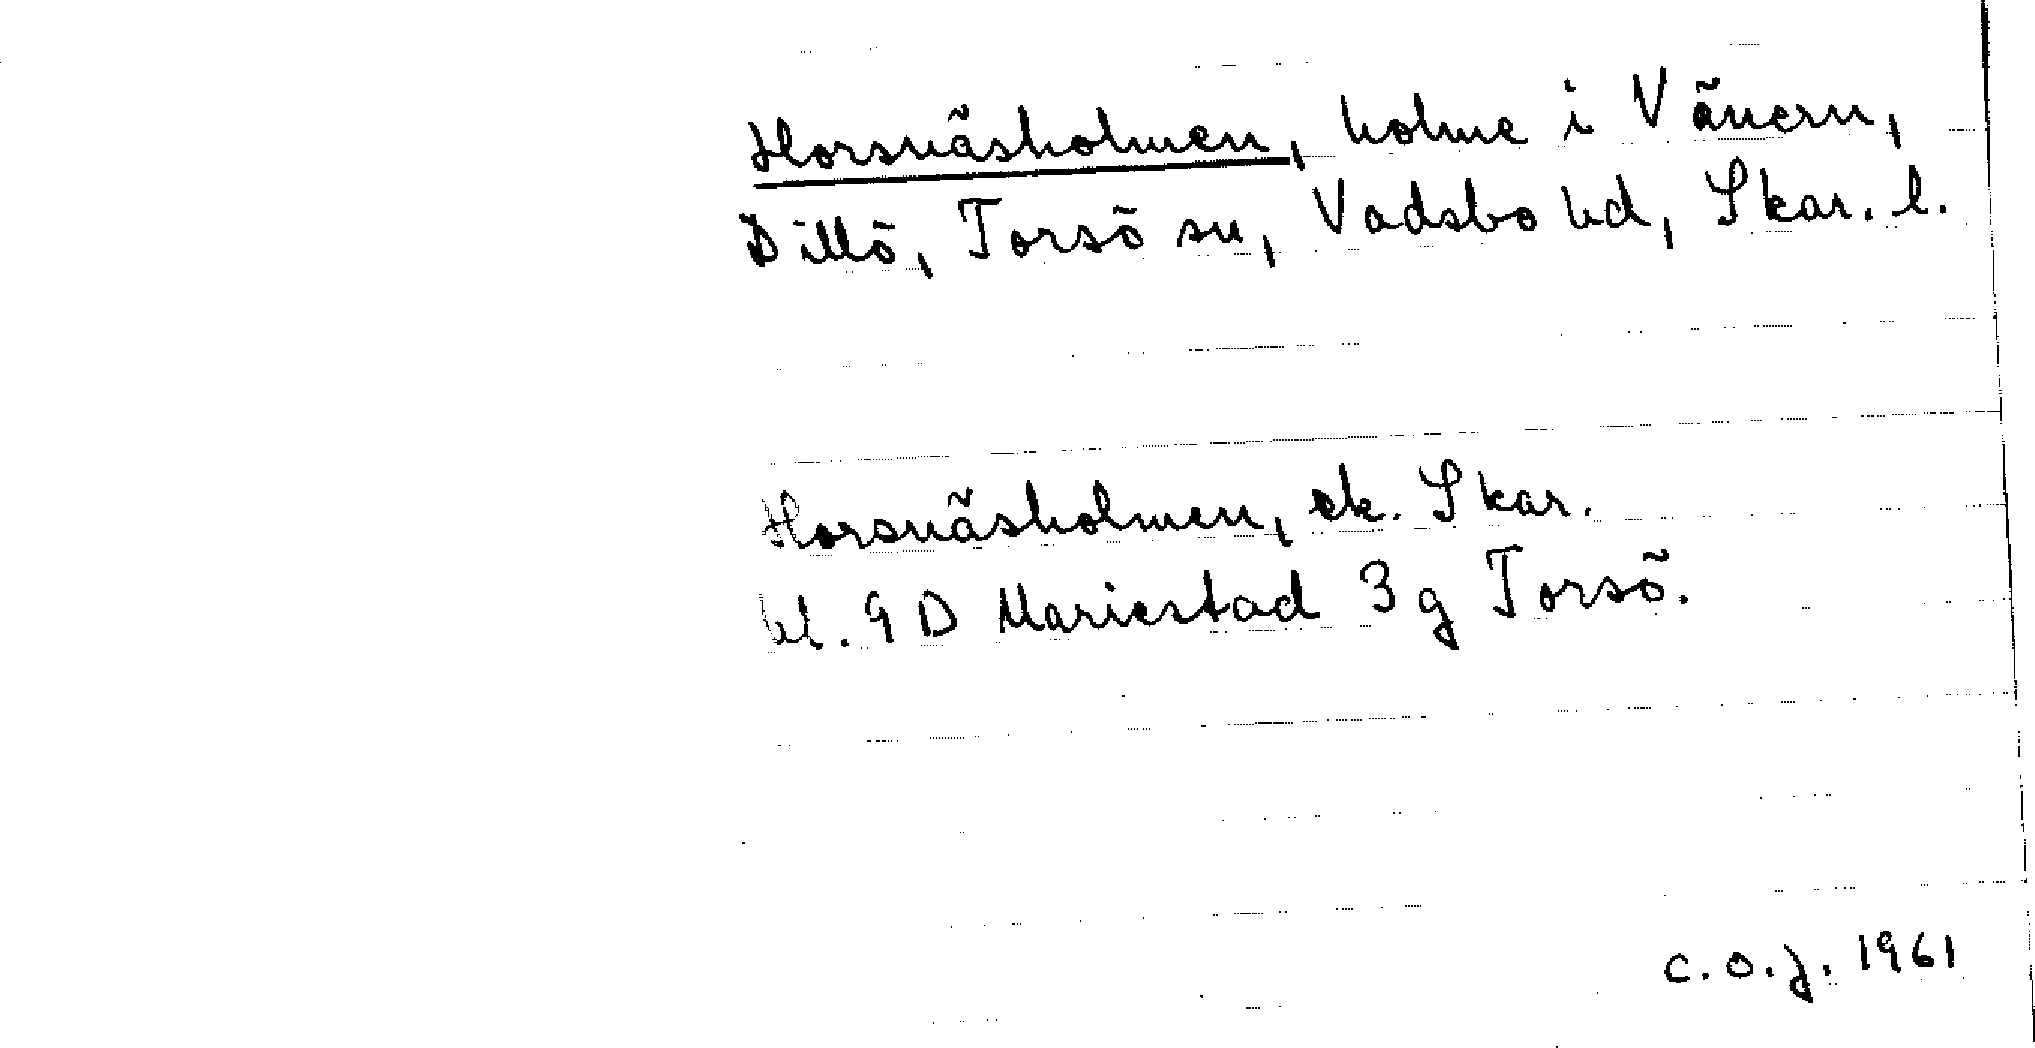 Horsnäsholmen, holme i Vänern,
Dillö, Torsö sn, Vadsbo hd, Skar. l.
Horsnäsholmen, ek. Skar.
bl. 9 D Mariestad 3 g Torsö.
C.O.J. 1961